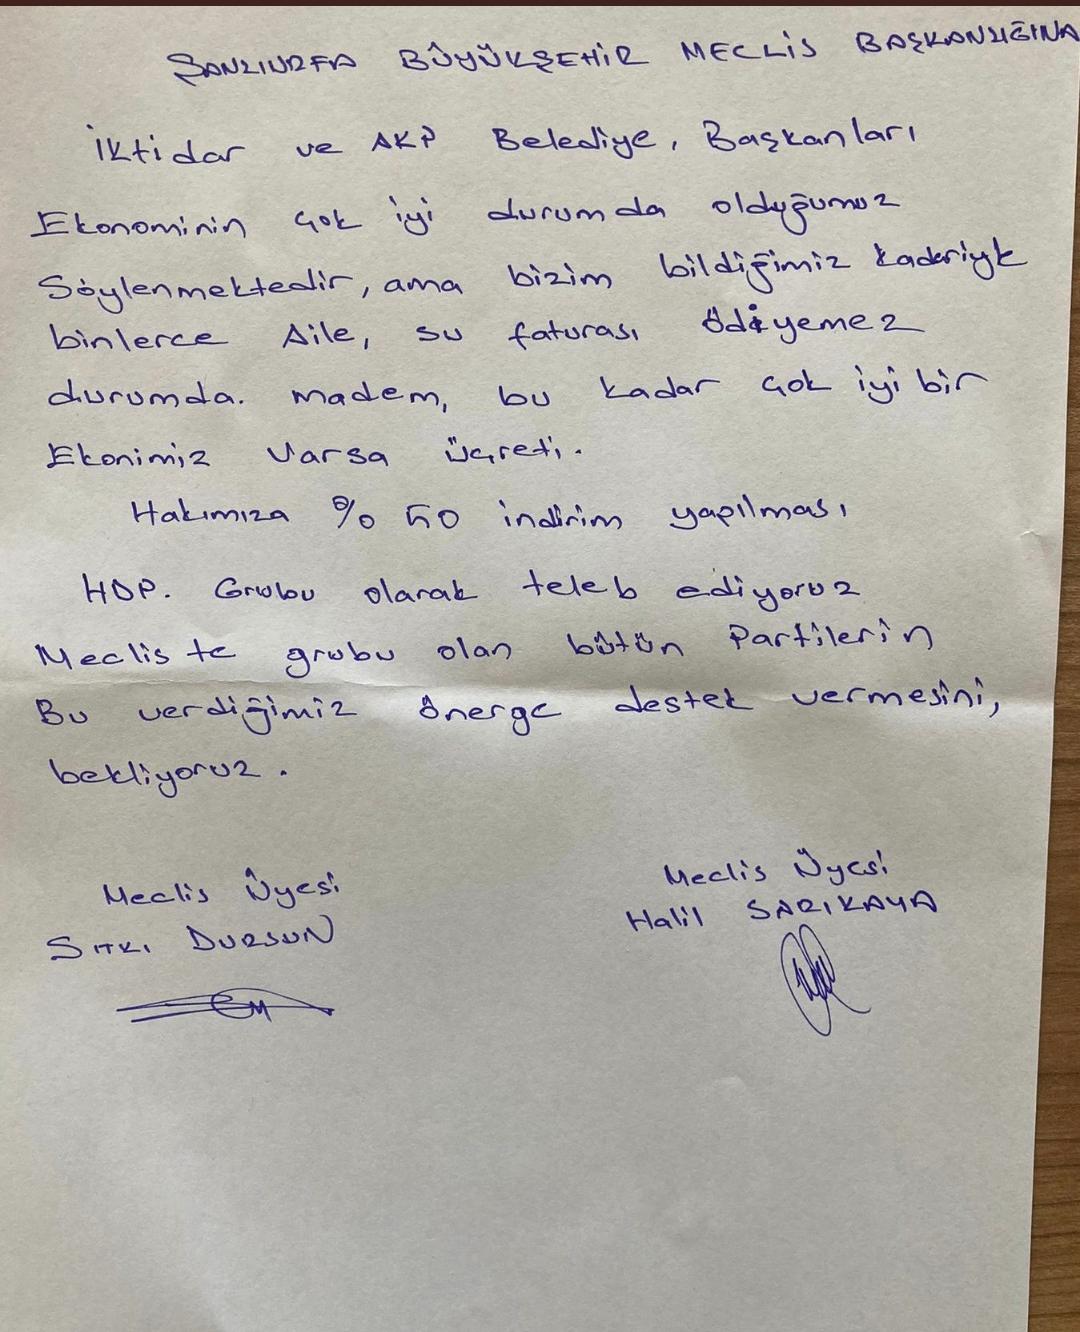 ŞANLIURFA BÜYÜKŞEHİR MECLİS BAŞKANLIĞINA
İktidar ve AKP Belediye, Başkanları
Ekonominin çok iyi durumda olduğumuz
Söylenmektedir, ama bizim bildiğimiz kadariyle
binlerce Aile, su faturası ödiyemez
durumda. madem, bu kadar çok iyi bir
Ekonimiz Varsa ücreti.
Hakımıza % 50 indirim yapılması
HDP. Grubu olarak teleb ediyoruz
Meclis te grubu olan bütün Partilerin
Bu verdiğimiz önerge destek vermesini,
bekliyoruz.
Meclis Üyesi
SITKI DURSUN
Meclis Üyesi
Halil SARIKAYA